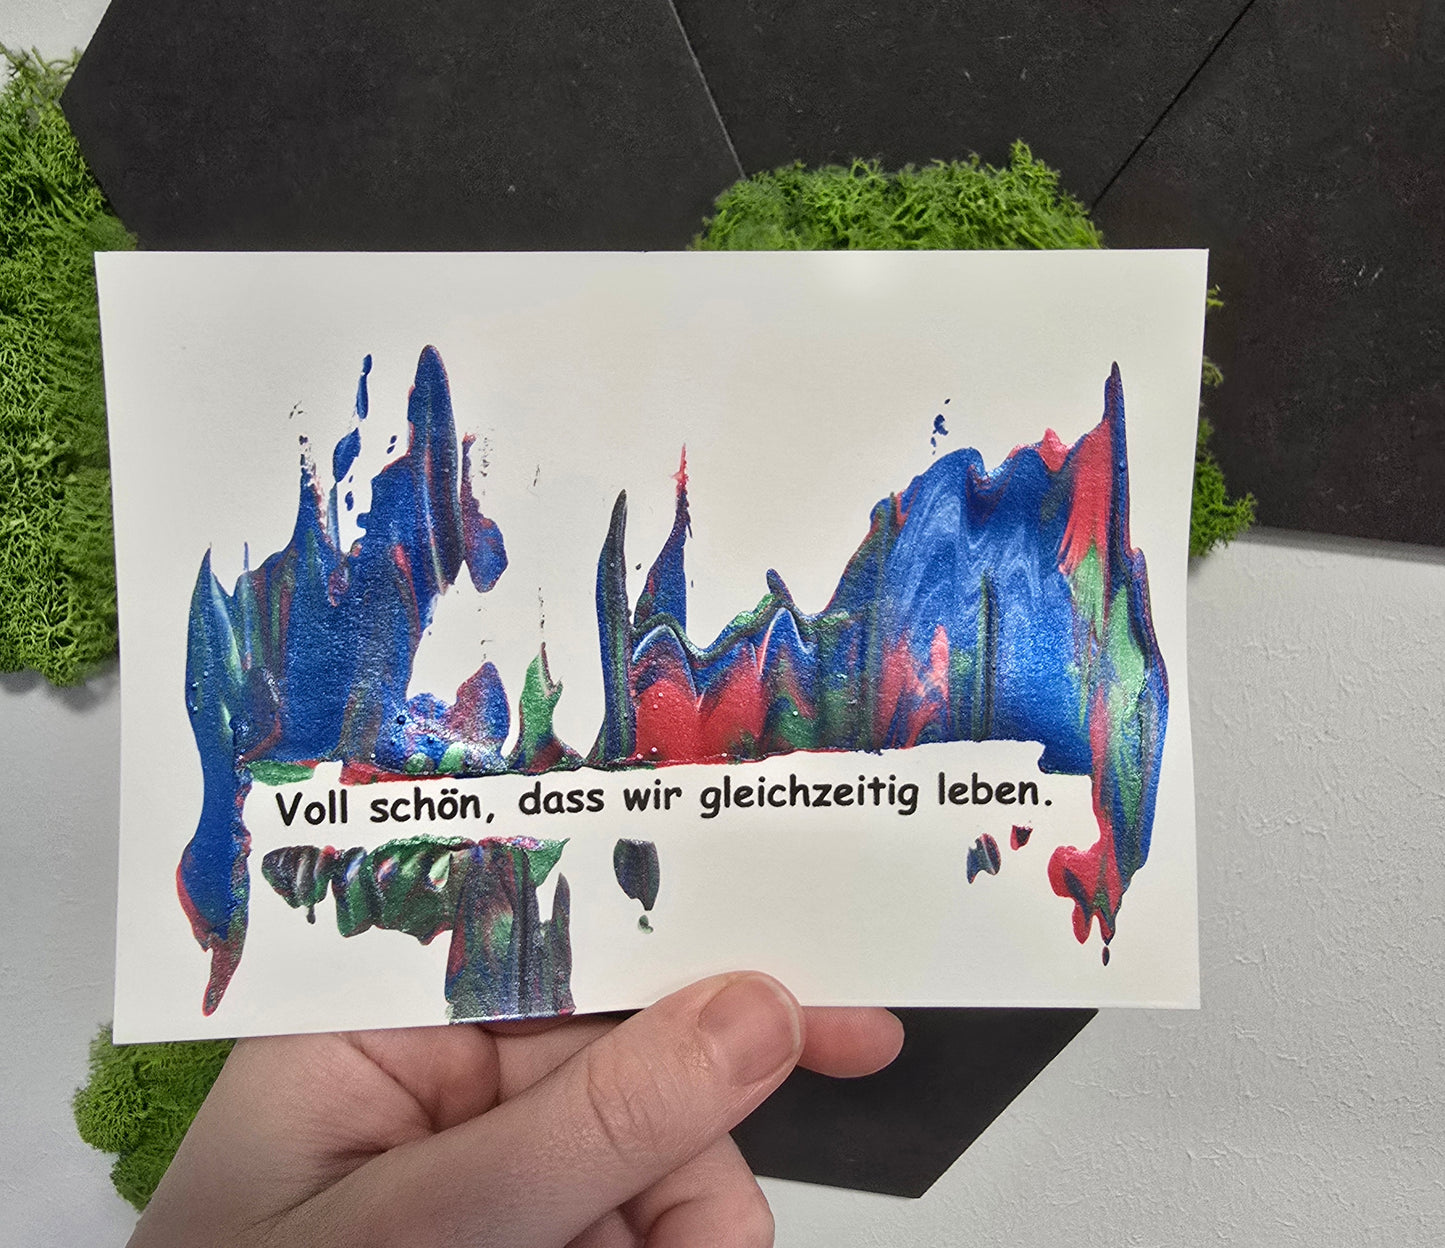 Voll schön, dass wir gleichzeitig leben.